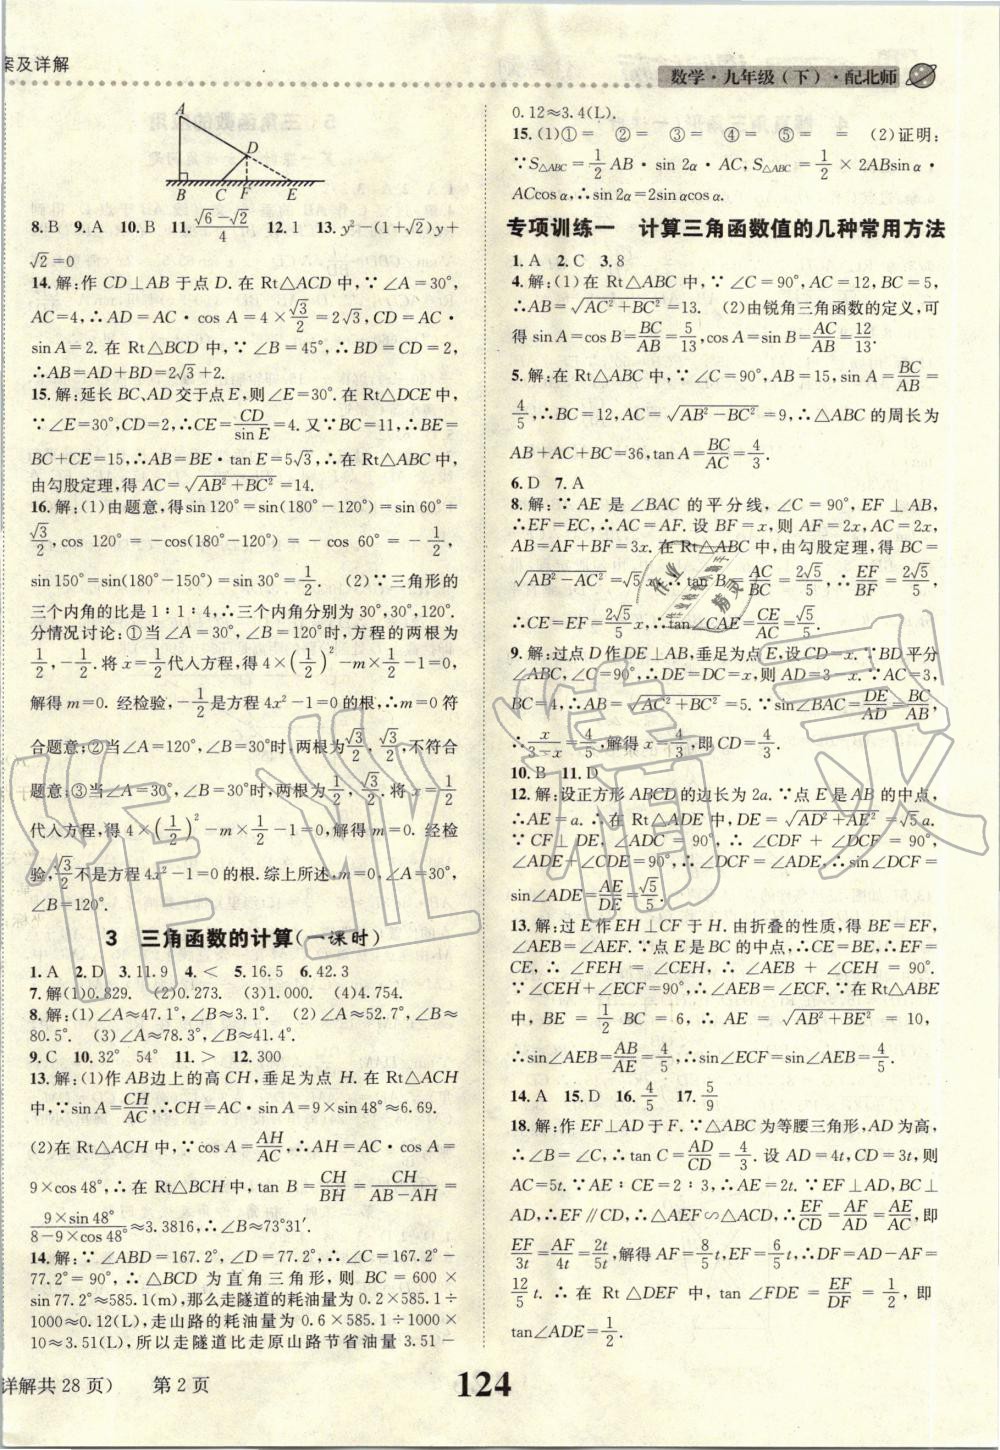 案及详解
数学·九年级(下)·配北师
A
D
B C F E
8.B 9.A 10.B 11.(√6-√2)/4 12.1 13.y²-(1+√2)y+
√2=0
14.解:作CD⊥AB于点D.在Rt△ACD中,∵∠A=30°,
AC=4,∴AD=AC·cos A=4×√3/2=2√3,CD=AC·
sin A=2.在Rt△BCD中,∵∠B=45°,∴BD=CD=2,
∴AB=AD+BD=2√3+2.
15.解:延长BC、AD交于点E,则∠E=30°.在Rt△DCE中,
∵∠E=30°,CD=2,∴CE=CD/sin E=4.又∵BC=11,∴BE=
BC+CE=15,∴AB=BE·tan E=5√3,∴在Rt△ABC中,
由勾股定理,得AC=√(AB²+BC²)=14.
16.解:(1)由题意,得sin120°=sin(180°-120°)=sin60°=
√3/2,cos 120°=-cos(180°-120°)=-cos 60°=-1/2,
sin150°=sin(180°-150°)=sin30°=1/2. (2)∵三角形的
三个内角的比是1∶1∶4,∴三个内角分别为30°,30°,120°.
分情况讨论:①当∠A=30°,∠B=120°时,方程的两根为
1/2,-1/2.将x=1/2代入方程,得4×(1/2)²-m×1/2-1=0,
解得m=0.经检验,-1/2是方程4x²-1=0的根,∴m=0符
合题意;②当∠A=120°,∠B=30°时,两根为√3/2,√3/2,不符合
题意;③当∠A=30°,∠B=30°时,两根为1/2,√3/2.将x=1/2
代入方程,得4×(1/2)²-m×1/2-1=0,解得m=0.经检
验,√3/2不是方程4x²-1=0的根.综上所述,m=0,∠A=30°,
∠B=120°.
3 三角函数的计算(一课时)
1.A 2.D 3.11.9 4.< 5.16.5 6.42.3
7.解(1)0.829. (2)0.273. (3)1.000. (4)4.754.
8.解:(1)∠A≈47.1°,∠B≈3.1°. (2)∠A≈52.7°,∠B≈
80.5°. (3)∠A≈78.3°,∠B≈41.4°.
9.C 10.32° 54° 11.> 12.300
13.解:(1)作AB边上的高CH,垂足为点H.在Rt△ACH
中,∵sin A=CH/AC,∴CH=AC·sin A=9×sin48°≈6.69.
(2)在Rt△ACH中,∵cos A=AH/AC,∴AH=AC·cos A=
9×cos48°,∴在Rt△BCH中,tan B=CH/BH=CH/(AB-AH)=
(9×sin 48°)/(8-9×cos 48°)≈3.3816,∴∠B≈73°31′.
14.解:∵∠ABD=167.2°,∠D=77.2°,∴∠C=167.2°-
77.2°=90°,∴△BCD为直角三角形,则BC=600×
sin77.2°≈585.1(m),那么走隧道的耗油量为0.2×585.1÷
1000≈0.12(L),走山路的耗油量为0.6×585.1÷1000×
10≈3.51(L),所以走隧道比走原山路节省油量3.51-
0.12≈3.4(L).
15.(1)①= ②= ③= ④= ⑤= (2)证明:
∵S△ABC=1/2AB·sin 2α·AC,S△ABC=1/2×2ABsinα·
ACcosα,∴sin 2α=2sinαcosα.
专项训练一 计算三角函数值的几种常用方法
1.A 2.C 3.8
4.解:(1)在Rt△ABC中,∵∠C=90°,AC=12,BC=5,
∴AB=√(AC²+BC²)=13. (2)由锐角三角函数的定义,可
得sin A=cos B=BC/AB=5/13,cos A=sin B=AC/AB=12/13.
5.解:在Rt△ABC中,∵∠C=90°,AB=15,sin A=BC/AB=
4/5,∴BC=12,AC=√(AB²-BC²)=9,∴△ABC的周长为
AB+AC+BC=36,tan A=BC/AC=4/3.
6.D 7.A
8.解:∵AE是∠BAC的平分线,∠C=90°,EF⊥AB,
∴EF=EC,∴AC=AF.设BF=x,则AF=2x,AC=2x,
AB=AF+BF=3x.在Rt△ABC中,由勾股定理,得BC=
√(AB²-AC²)=√5x,∴tan B=AC/BC=2√5/5,∴EF/BF=2√5/5,
∴CE=EF=2√5/5x,∴tan∠CAE=CE/AC=√5/5.
9.解:过点D作DE⊥AB,垂足为点E,设CD=x.∵BD平分
∠ABC,∠C=90°,∴DE=DC=x,则AD=3-x.∵AC=3,
BC=4,∴AB=√(AC²+BC²)=5.∵sin∠BAC=DE/AD=BC/AB,
∴x/(3-x)=4/5,解得x=4/3,即CD=4/3.
10.B 11.D
12.解:设正方形ABCD的边长为2a.∵点E是AB的中点,
∴AE=a.∴在Rt△ADE中,DE=√(AD²+AE²)=√5a.
∵CF⊥DE,∠ADC=90°,∴∠CDF+∠DCF=90°,
∠ADE+∠CDE=90°,∴∠DCF=∠ADE,∴sin∠DCF=
sin∠ADE=AE/DE=√5/5.
13.解:过E作EH⊥CF于H.由折叠的性质,得BE=EF,
∠AEB=∠AEF.∵点E是BC的中点,∴CE=BE,∴EF=
CE,∴∠FEH=∠CEH,∴∠AEB+∠CEH=90°.
∵∠CEH+∠ECF=90°,∴∠AEB=∠ECF.∵在Rt△ABE
中,BE=1/2BC=6,∴AE=√(AB²+BE²)=10,
∴sin∠AEB=AB/AE=4/5,∴sin∠ECF=sin∠AEB=4/5.
14.A 15.D 16.4/5 17.5/9
18.解:作EF⊥AD于F.∵△ABC为等腰三角形,AD为高,
∴∠B=∠C,∴tan C=AD/CD=4/3.设AD=4t,CD=3t,则
AC=5t.∵AE∶CE=2∶3,∴AE=2t.∵EF⊥AD,BC⊥
AD,∴EF∥CD,∴△AEF∽△ACD,∴EF/CD=AF/AD=AE/AC,即
EF/3t=AF/4t=2t/5t,解得AF=8/5t,EF=6/5t,∴DF=AD-AF=
12/5t.∴在Rt△DEF中,tan∠FDE=EF/DF=1/2,即
tan∠ADE=1/2.
详解共28页) 第2页
124
作业精灵